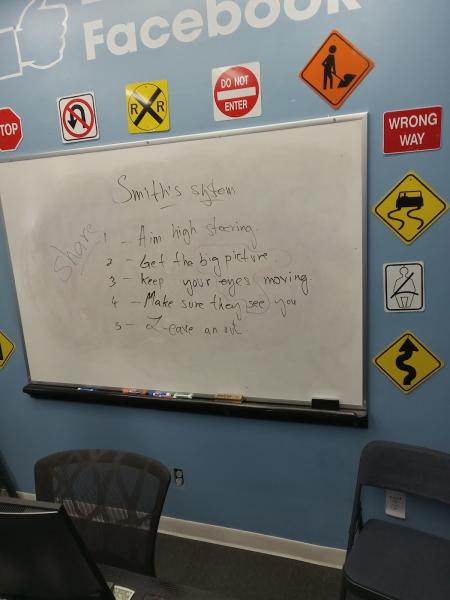 Facebook
STOP
R R
DO NOT
ENTER
WRONG
WAY
Smith's system
Share
1 - Aim high steering.
2 - Get the big picture.
3 - Keep your eyes moving.
4 - Make sure they see you
5 - Leave an out.